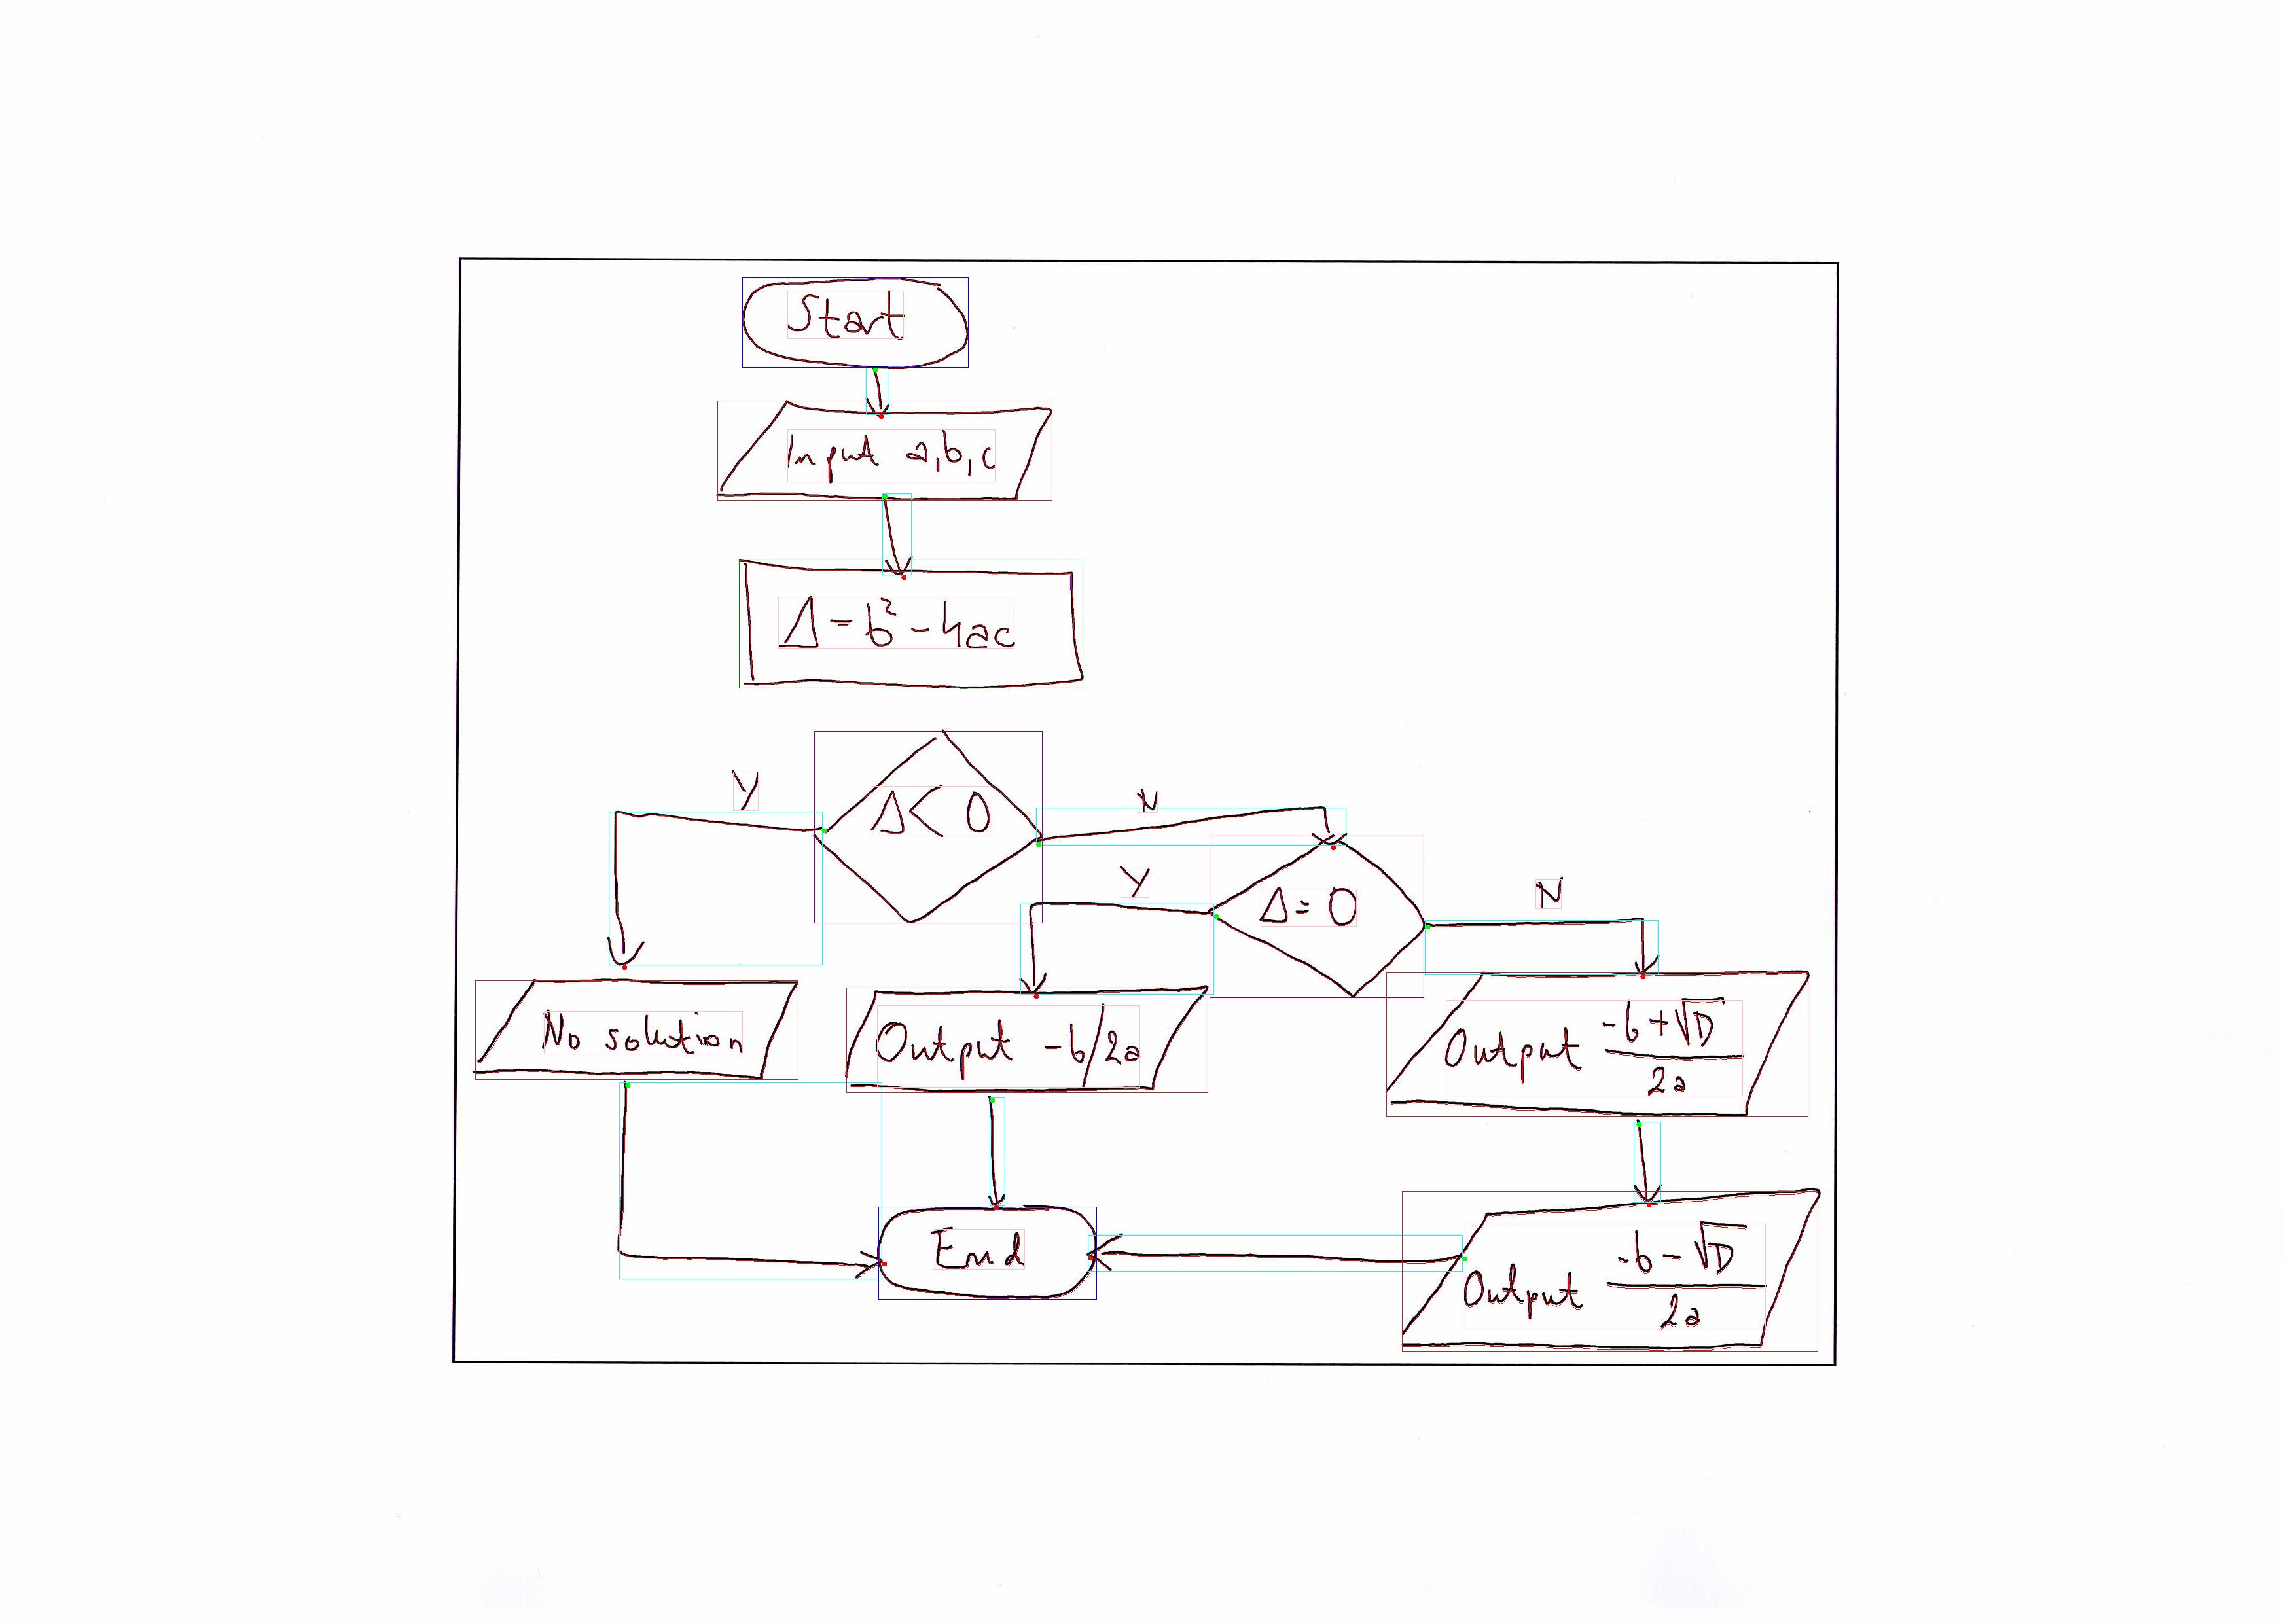 Start
Input a,b,c
Δ = b² - 4ac
Y
Δ < 0
N
Y
Δ = 0
N
No solution
Output -b/2a
Output (-b+√D)/2a
End
Output (-b-√D)/2a